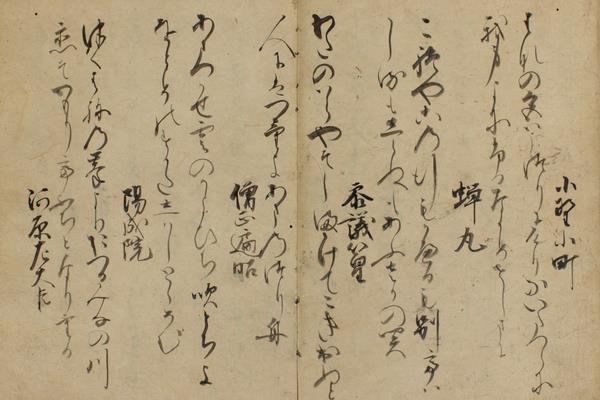 小野小町
はなの色はうつりにけりないたつらに
我身よにふるなかめせしまに
蝉丸
これやこの行もかへるも別ては
しるもしらぬもあふさかの関
参議篁
わたのはらやそしまかけてこき出ぬと
人にはつけよあまのつり舟
僧正遍昭
あまつかせ雲のかよひち吹とちよ
をとめのすかたしはしとゝめむ
陽成院
つくはねの峯よりおつるみなの川
恋そつもりてふちとなりける
河原左大臣